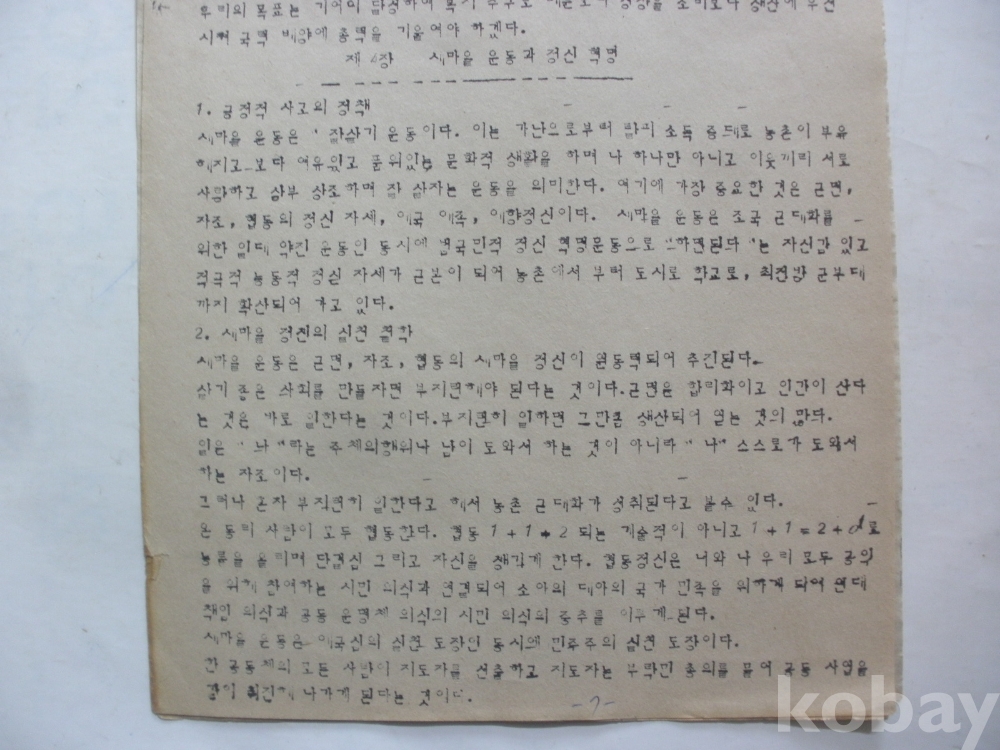 시켜 국력 배양에 총력을 기울여야 하겠다.
제 4장 새마을 운동과 정신 혁명
1. 긍정적 사고의 정책
새마을 운동은 " 잘살기 운동이다. 이는 가난으로부터 탈피 소득 증대로 농촌이 부유
해지고 보다 여유있고 품위있는 문화적 생활을 하며 나 하나만 아니고 이웃끼리 서로
사랑하고 상부 상조하며 잘 살자는 운동을 의미한다. 여기에 가장 중요한 것은 근면,
자조, 협동의 정신 자세, 애국 애족, 애향정신이다. 새마을 운동은 조국 근대화를
위한 일대 약진 운동인 동시에 범국민적 정신 혁명운동으로 "하면된다 "는 자신감 있고
적극적 능동적 정신 자세가 근본이 되어 농촌에서 부터 도시로 학교로, 최전방 군부대
까지 확산되어 가고 있다.
2. 새마을 정신의 실천 철학
새마을 운동은 근면, 자조, 협동의 새마을 정신이 원동력되어 추진된다.
살기 좋은 사회를 만들자면 부지런해야 된다는 것이다. 근면은 합리화이고 인간이 산다
는 것은 바로 일한다는 것이다. 부지런히 일하면 그만큼 생산되어 얻는 것의 많다.
일은 " 나 "라는 주체의행위나 남이 도와서 하는 것이 아니라 " 나" 스스로가 도와서
하는 자조이다.
그러나 혼자 부지런히 일한다고 해서 농촌 근대화가 성취된다고 볼수 있다.
온 동리 사람이 모두 협동한다. 협동 1 + 1 + 2 되는 기술적이 아니고 1 + 1 = 2 + α로
능률을 올리며 단결심 그리고 자신을 생기게 한다. 협동정신은 너와 나 우리 모두 공익
을 위해 참여하는 시민 의식과 연결되어 소아의 대아의 국가 민족을 위하게 되며 연대
책임 의식과 공동 운명체 의식의 시민 의식의 중추를 이루게된다.
새마을 운동은 애국심의 실천 도장인 동시에 민주주의 실천 도장이다.
한 공동체의 모든 사람이 지도자를 선출하고 지도자는 부락민 총의를 물어 공동 사업을
같이 추진해 나가게 된다는 것이다.
kobay